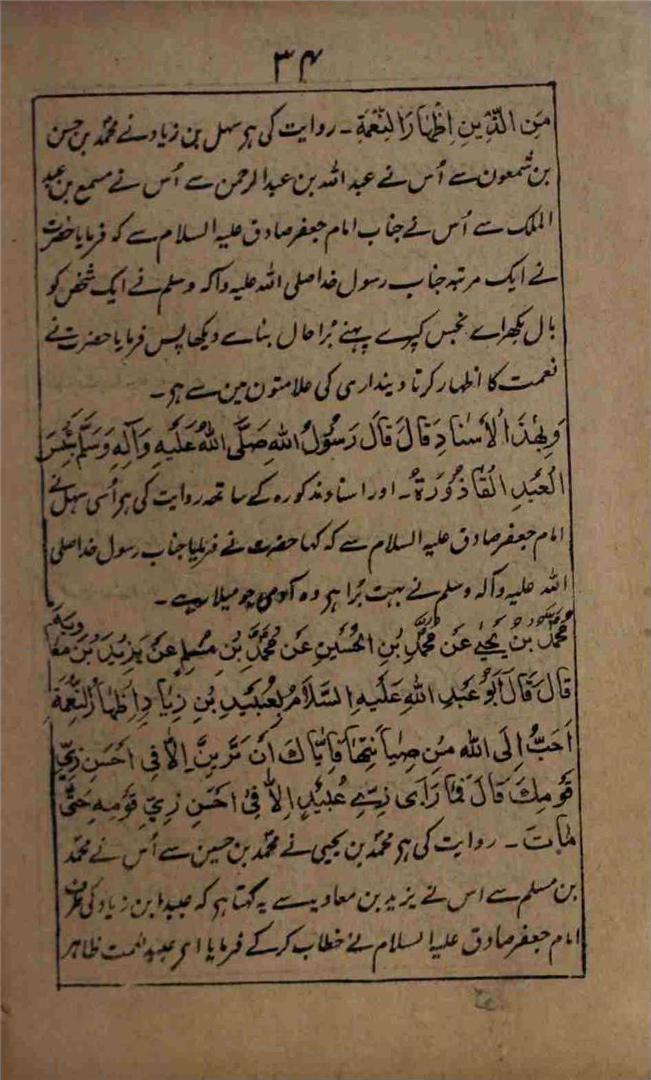 ۳۴
مِنَ الدِّينِ اِظْهَارَ النِّعْمَةِ۔ روایت کی ہر سہل بن زیاد نے محمد بن حسن
بن شمعون سے اُس نے عبد اللہ بن عبد الرحمن سے اُس نے مسمع بن عبد
الملک سے اُس نے جناب امام جعفر صادق علیہ السلام سے کہ فرمایا حضرت
نے ایک مرتبہ جناب رسول خدا صلی اللہ علیہ وآلہ وسلم نے ایک شخص کو
بال بکھراے نجس کپڑے پہنے بُرا حال بناے دیکھا پس فرمایا حضرت نے
نعمت کا اظہار کرنا دینداری کی علامتون مین سے ہر۔
وَبِهٰذَا الْاَسْنَادِ قَالَ قَالَ رَسُوْلُ اللهِ صَلَّى اللهُ عَلَيْهِ وَآلِهِ وَسَلَّمَ بِئْسَ
الْعَبْدِ الْقَاذُوْرَةُ۔ اور اسناد مذکورہ کے ساتھ روایت کی ہر اُسی سہل نے
امام جعفر صادق علیہ السلام سے کہ کہا حضرت نے فرمایا جناب رسول خدا صلی
اللہ علیہ وآلہ وسلم نے بہت بُرا ہر وہ آدمی جو میلا رہے۔
مُحَمَّدُ بْنُ يَحْيٰى عَنْ مُحَمَّدِ بْنِ الْحُسَيْنِ عَنْ مُحَمَّدِ بْنِ مُسْلِمٍ عَنْ يَزِيْدَ بْنِ مُعَاوِيَةَ
قَالَ قَالَ اَبُوْ عَبْدِ اللهِ عَلَيْهِ السَّلَامُ لِعُبَيْدِ بْنِ زِيَادٍ اِظْهَارُ النِّعْمَةِ
اَحَبُّ اِلَى اللهِ مِنْ صِيَانَتِهَا فَاِيَّاكَ اَنْ تَزَيَّنَ اِلَّا فِيْ اَحْسَنِ زِيِّ
قَوْمِكَ قَالَ فَمَا رَاٰى زِيَّ عُبَيْدٍ اِلَّا فِيْ اَحْسَنِ زِيِّ قَوْمِهِ حَتّٰى
مَاتَ۔ روایت کی ہر محمد بن یحیی نے محمد بن حسین سے اُس نے محمد
بن مسلم سے اس نے یزید بن معاویہ سے یہ کہتا ہر کہ عبید ابن زیاد کی طرف
امام جعفر صادق علیہ السلام نے خطاب کر کے فرمایا اے عبید نعمت ظاہر